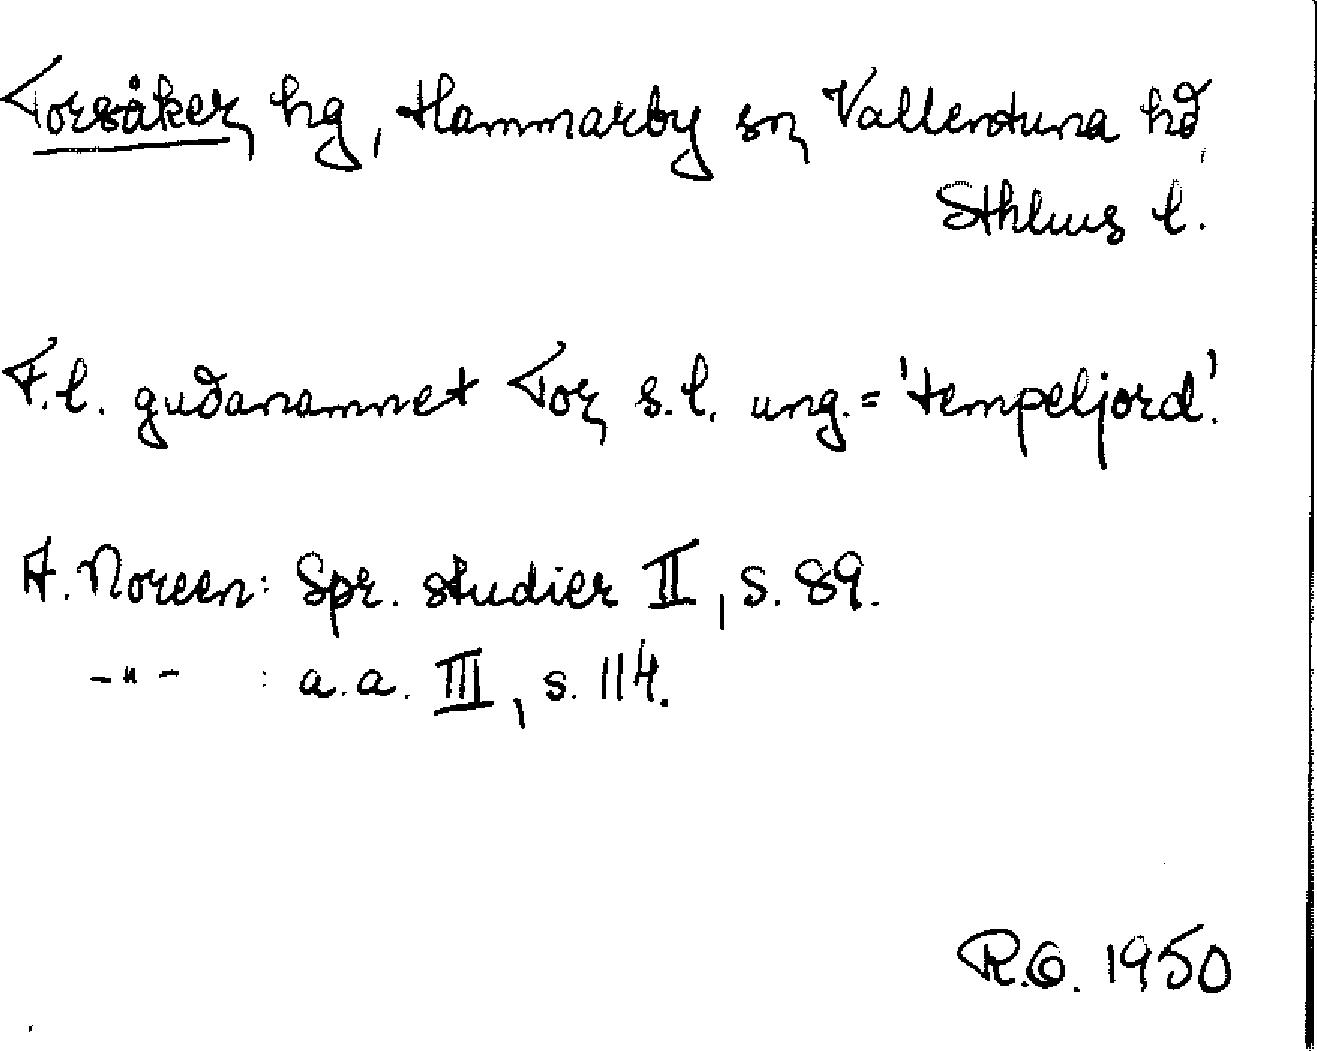 Torsåker, hg, Hammarby sn, Vallentuna hd,
Sthlms l.
F.l. gudanamnet Tor, s.l. ung.= 'tempeljord'.
A. Noreen: Spr. studier II, s. 89.
-"- : a.a. III, s. 114.
R.O. 1950